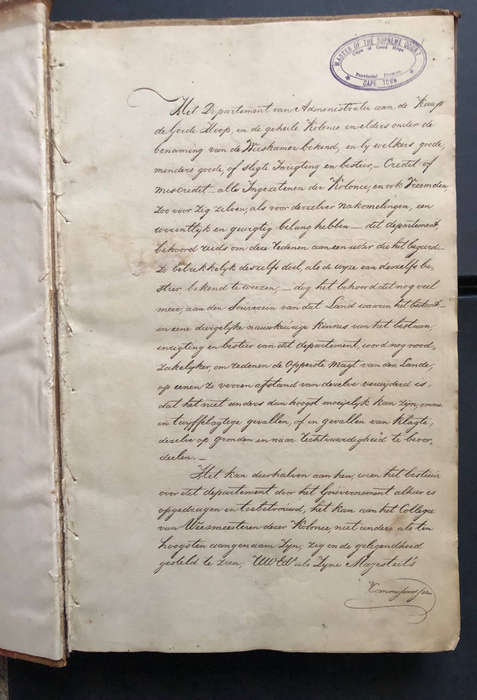 MASTER OF THE SUPREME COURT
Cape of Good Hope
Provincial Division
CAPE TOWN
Het Departement van Administratie aan de Kaap
de Goede Hoop, en de geheele Kolonie en elders onder de
benaming van de Weeskamer bekend, en by welkers goede,
minders goede, of slegte Inrigting en bestier, – Credit of
miscredit – alle Ingezetenen der Kolonie, en ook Vreemden
zoo voor zig zelven, als voor derzelver nakomelingen, een
weezentlyk en gewigtig belang hebben – dit departement,
behoord reeds om deze redenen aan een ieder die het begeerd
te betrekkelyk deszelfs doel, als de wyze van deszelfs be,
stier bekend te weezen, – dog het behoord dit nog veel
meer, aan den Souverein van dit Land waarin het bestaat –
en eene dergelyke nauwkeurige Kennis van het bestaan,
inrigting en bestier van dit departement, word nog nood,
zakelyker, om redenen de Opperste Magt van den Lande,
op eenen te verren afstand van dezelve verwyderd is
dat het niet anders dan hoogst moeijelyk kan zyn, omme
in twyffelagtige gevallen, of in gevallen van klagte,
dezelve op gronden en naar rechtvaardigheid te beoor,
deelen. –
Het kan dierhalven aan hen, wien het bestier
over dit departement door het Gouvernement alhier is
opgedragen en toebetrouwd, het kan aan het Collegie
van Weesmeesteren dezer Kolonie, niet anders als ten
hoogsten aangenaam zyn, zig in de gelegendheid
gesteld te zien, UWEd als Zyne Majesteit's
Commissaris